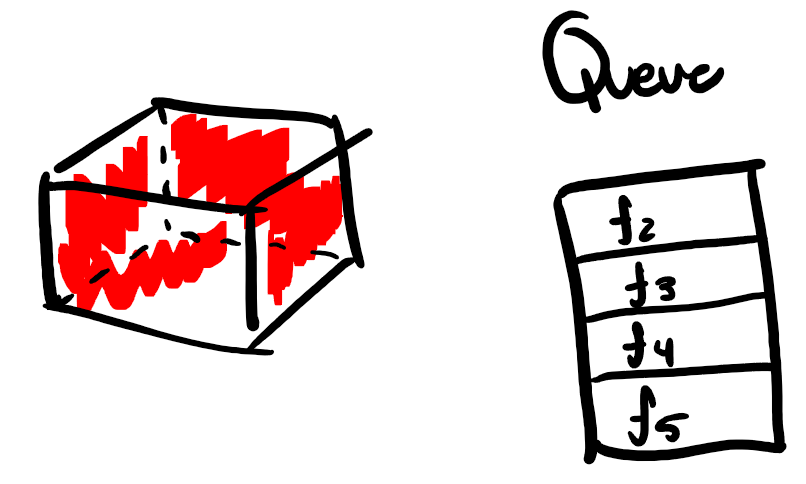 Queue
f2
f3
f4
f5